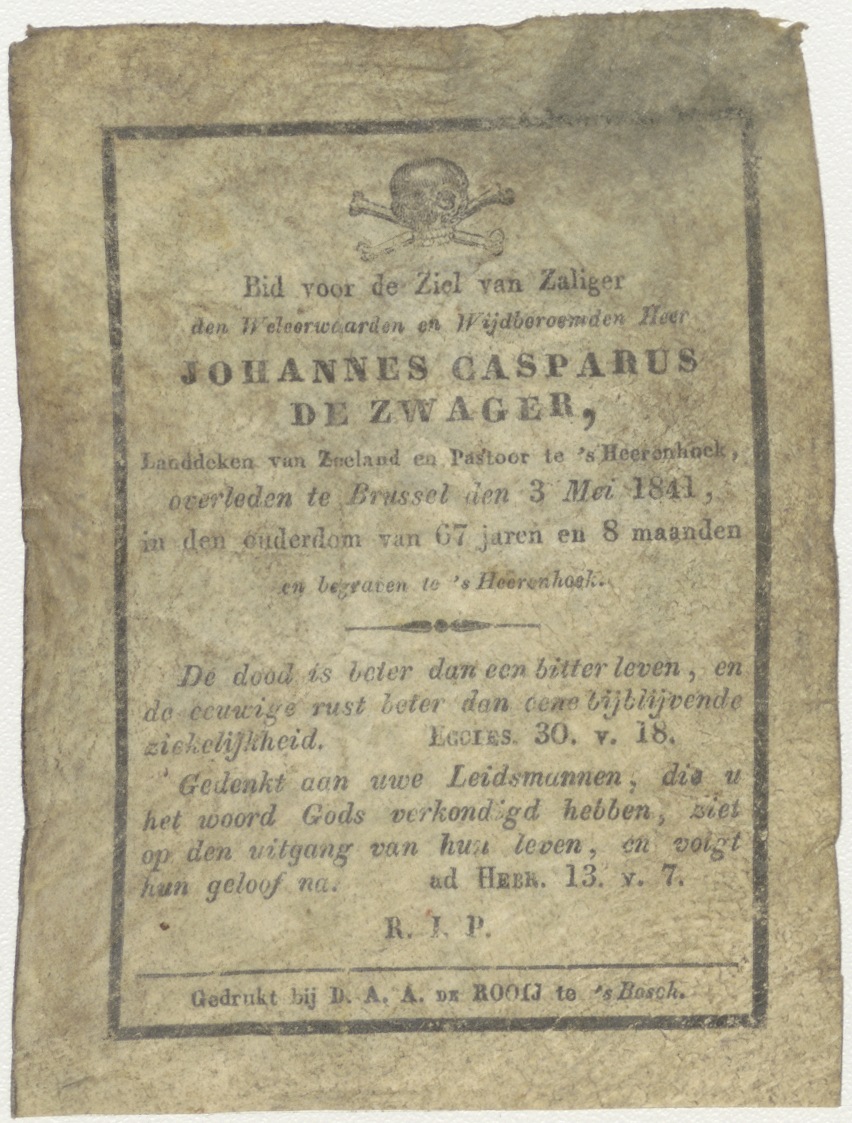 Bid voor de Ziel van Zaliger
den Weleerwaarden en Wijdberoemden Heer
JOHANNES CASPARUS
DE ZWAGER,
Landdeken van Zeeland en Pastoor te 's Heerenhoek,
overleden te Brussel den 3 Mei 1841,
in den ouderdom van 67 jaren en 8 maanden
en begraven te 's Heerenhoek.
De dood is beter dan een bitter leven, en
de eeuwige rust beter dan eene bijblijvende
ziekelijkheid. ECCLES. 30. v. 18.
Gedenkt aan uwe Leidsmannen, die u
het woord Gods verkondigd hebben, ziet
op den uitgang van hun leven, en volgt
hun geloof na. ad HEBR. 13. v. 7.
R. I. P.
Gedrukt bij D. A. A. DE ROOIJ te 's Bosch.